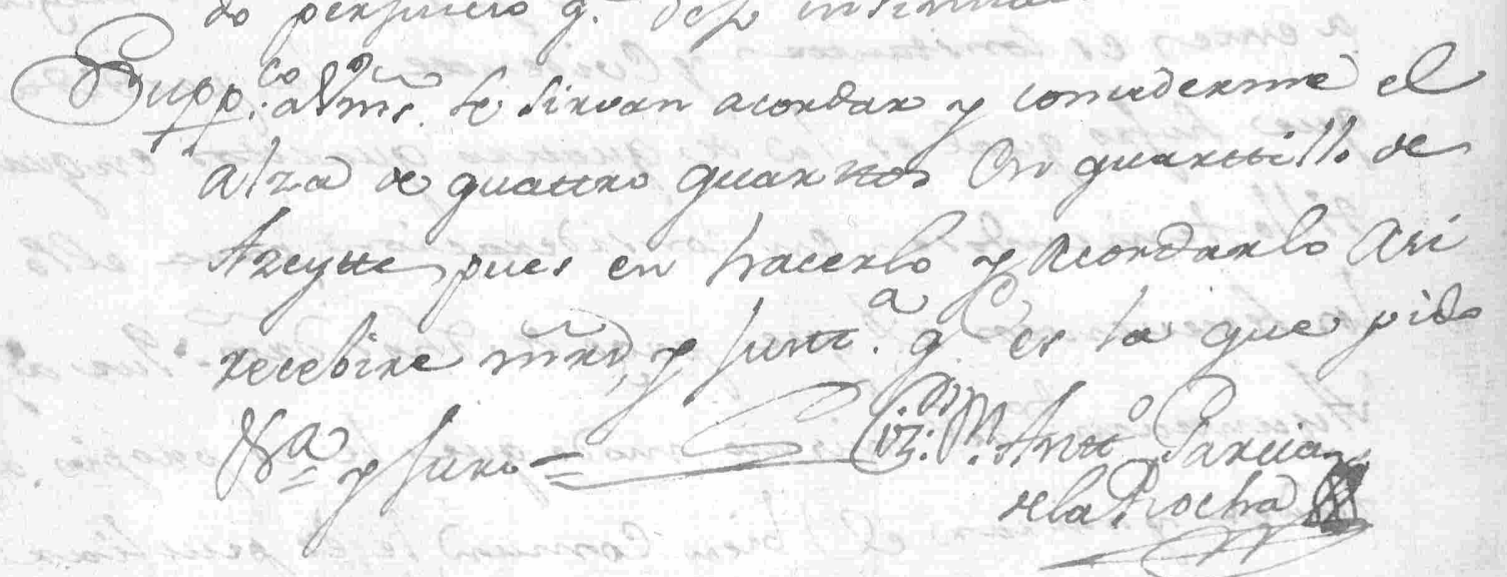 do perjuicio q.e
Supp.co a Vms. se sirvan acordar y concederme el
alza de quattro quarttos en quarttillo de
Azeytte, pues en hacerlo y acordarlo Asi
recebire mrd, y Justt.a q.e es la que pido
&.a y juro =
Liz.do Dn. Antt.o Garcia
de la Rocha